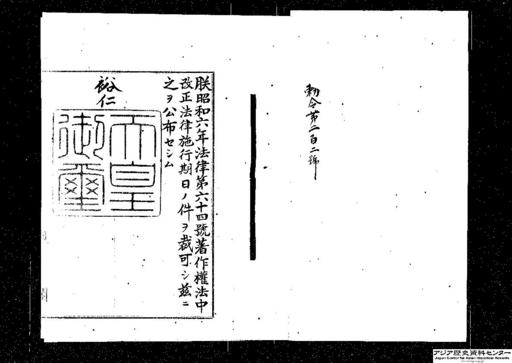 勅令第二百二號
朕昭和六年法律第六十四號著作權法中
改正法律施行期日ノ件ヲ裁可シ茲ニ
之ヲ公布セシム
裕仁
天皇
御璽
アジア歴史資料センター
Japan Center for Asian Historical Records